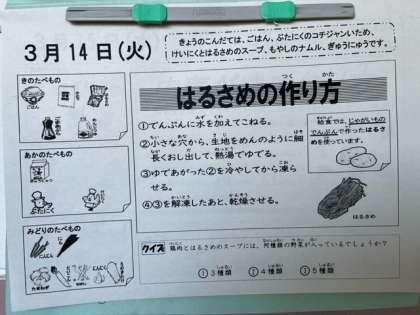 ３月14日(火)
きょうのこんだては、ごはん、ぶたにくのコチジャンいため、
けいにくとはるさめのスープ、もやしのナムル、ぎゅうにゅうです。
きのたべもの
ごはん
あかのたべもの
ぶたにく
みどりのたべもの
にんじん
たまねぎ
はるさめの作り方
①でんぷんに水を加えてこねる。
②小さな穴から、生地をめんのように細
長くおし出して、熱湯でゆでる。
③ゆであがった②を冷やしてから凍ら
せる。
④③を解凍したあと、乾燥させる。
給食では、じゃがいもの
でんぷんで作ったはるさ
めを使っています。
はるさめ
クイズ 鶏肉とはるさめのスープには、何種類の野菜が入っているでしょうか？
①３種類 ②４種類 ③５種類